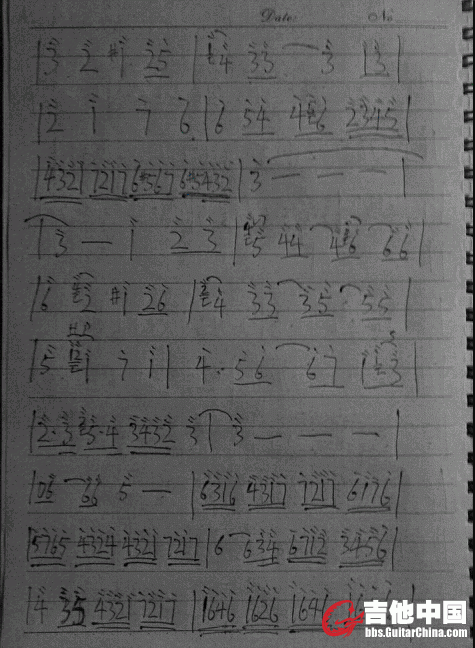 Date: No
|3 2 #1 25 |4 33 3 13|
|2 1 7 6|6 54 4#6 2345|
|4321 7217 6#567 6#5432|3 — — —|
|3 — 1 2 3|5 44 46 66|
|6 2 #1 26 |4 33 35 55|
|5 1 7 1| 4. 56 67 1 3|
|2.3 5.4 3432 3|3 — — —|
|03 63 5 —|6316 4317 7217 6176|
|5765 4324 4321 7217|6 634 6712 3456|
|4 35 4321 7217|1646 1626 1646
吉他中国
bbs.GuitarChina.com